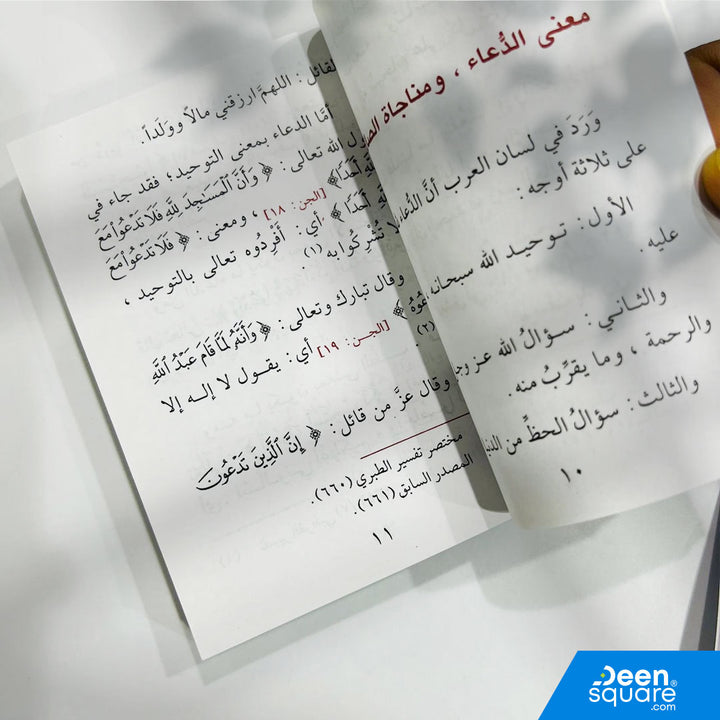 معنى الدُّعاء ، ومناجاة
وَرَدَ في لسان العرب أنَّ الدُّعاء
على ثلاثة أوجه :
الأول : توحيد الله سبحانه
عليه .
والثاني : سؤالُ الله عز وجل
والرحمة ، وما يقرِّبُ منه .
والثالث : سؤالُ الحظِّ من الدنيا
١٠
لقائل : اللهمَّ ارزقني مالاً وولَداً .
أمَّا الدعاء بمعنى التوحيد ، فقد جاء في
ل الله تعالى : ﴿ وَأَنَّ ٱلْمَسَٰجِدَ لِلَّهِ فَلَا تَدْعُوا۟ مَعَ
ٱللَّهِ أَحَدًا﴾ [الجن: ١٨] ، ومعنى : ﴿ فَلَا تَدْعُوا۟ مَعَ
ٱللَّهِ أَحَدًا ﴾ أي : أَفْرِدُوه تعالى بالتوحيد ،
لا تشركوا به (١) .
وقال تبارك وتعالى : ﴿ وَأَنَّهُۥ لَمَّا قَامَ عَبْدُ ٱللَّهِ
يَدْعُوهُ ﴾ [الجن: ١٩] أي : يقول لا إله إلا
(٢) .
وقال عزَّ من قائل : ﴿ إِنَّ ٱلَّذِينَ تَدْعُونَ
مختصر تفسير الطبري (٦٦٠) .
المصدر السابق (٦٦١) .
١١
Deen
square®
.com